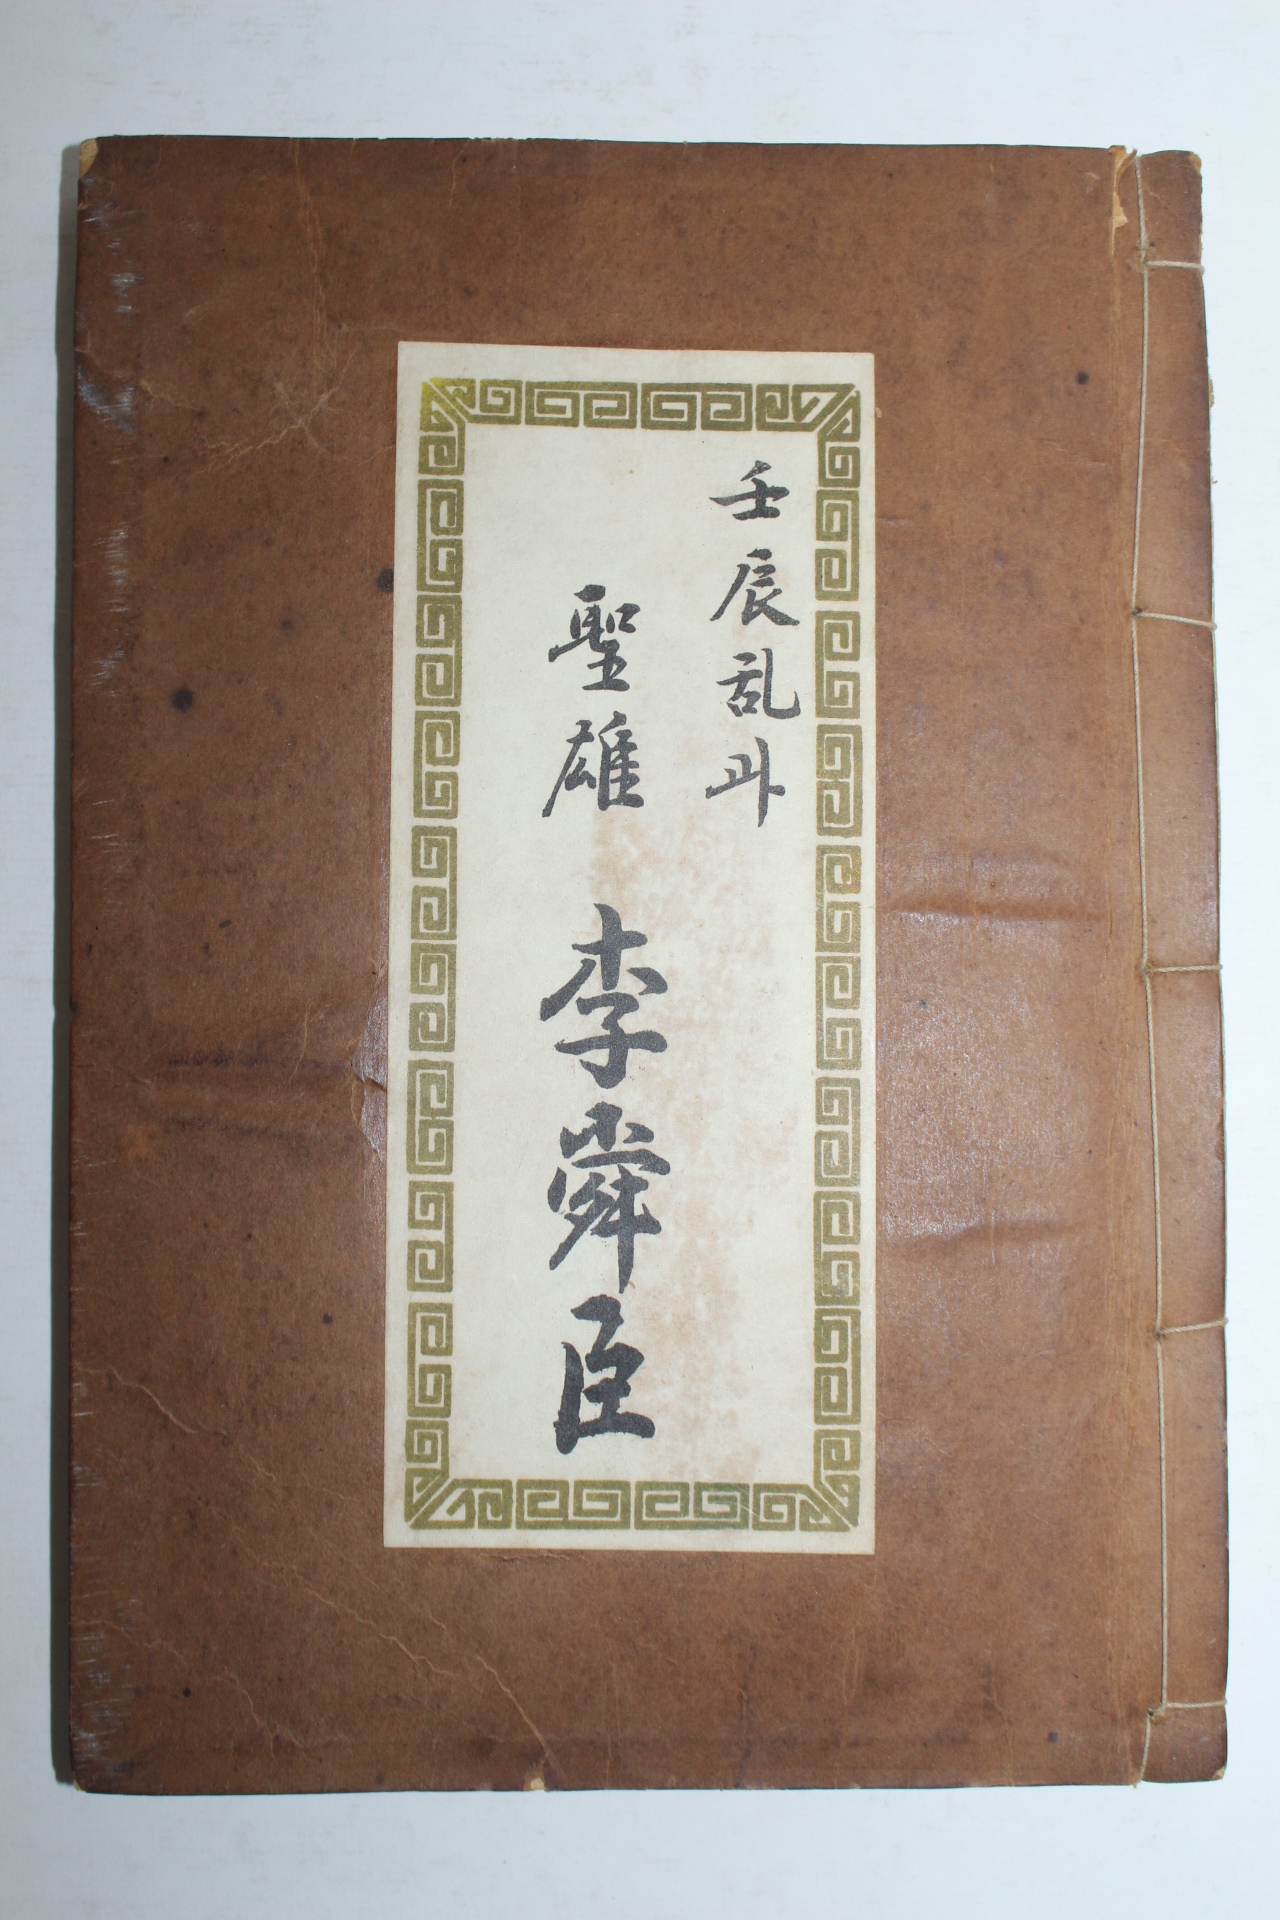 壬辰乱과
聖雄 李舜臣